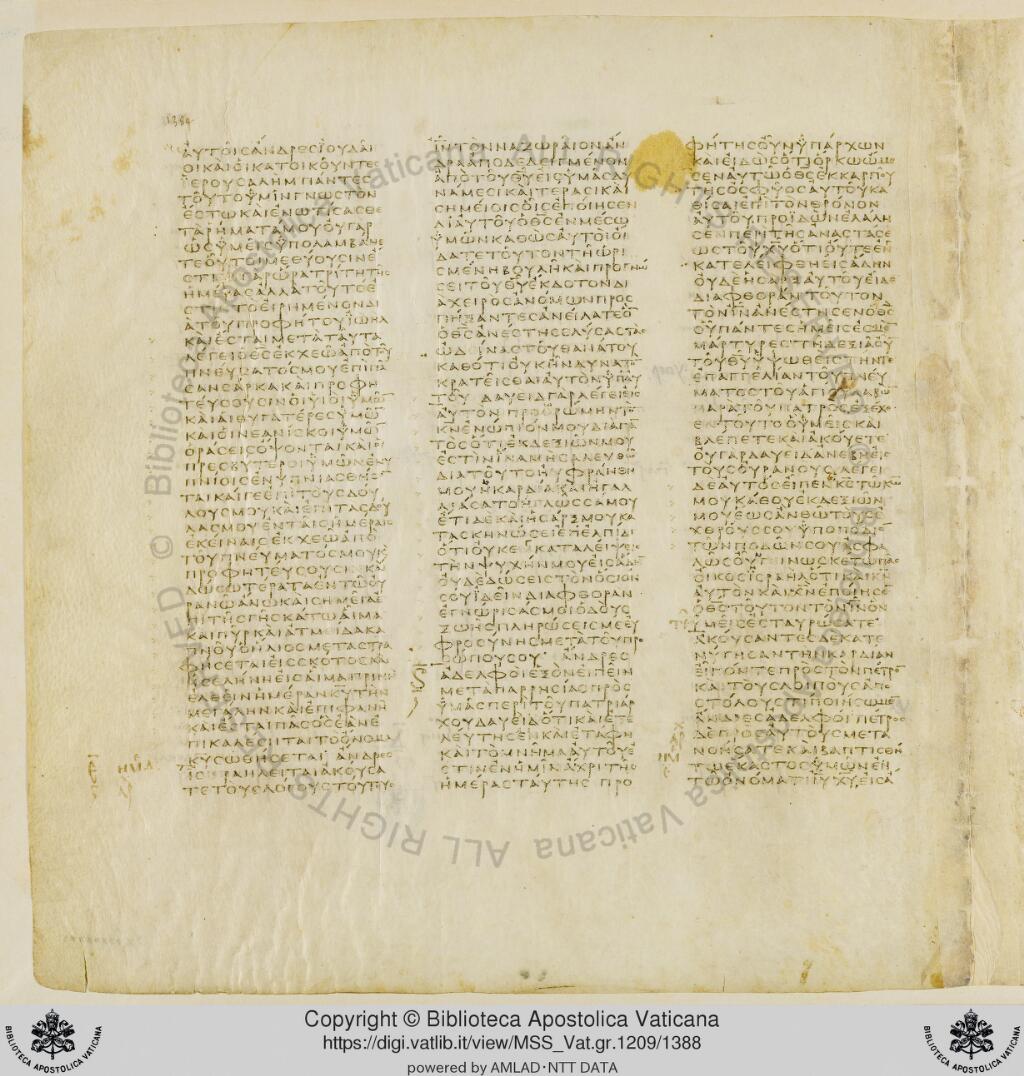 1384
ΑΥΤΟΙΣ ΑΝΔΡΕΣ ΙΟΥΔΑΙ
ΟΙ ΚΑΙ ΟΙ ΚΑΤΟΙΚΟΥΝΤΕΣ
ΙΕΡΟΥΣΑΛΗΜ ΠΑΝΤΕΣ
ΤΟΥΤΟ ΥΜΙΝ ΓΝΩΣΤΟΝ
ΕΣΤΩ ΚΑΙ ΕΝΩΤΙΣΑΣΘΕ
ΤΑ ΡΗΜΑΤΑ ΜΟΥ ΟΥ ΓΑΡ
ΩΣ ΥΜΕΙΣ ΥΠΟΛΑΜΒΑΝΕ
ΤΕ ΟΥΤΟΙ ΜΕΘΥΟΥΣΙΝ Ε
ΣΤΙΝ ΓΑΡ ΩΡΑ ΤΡΙΤΗ ΤΗΣ
ΗΜΕΡΑΣ ΑΛΛΑ ΤΟΥΤΟ Ε
ΣΤΙ ΤΟ ΕΙΡΗΜΕΝΟΝ ΔΙ
Α ΤΟΥ ΠΡΟΦΗΤΟΥ ΙΩΗΛ
ΚΑΙ ΕΣΤΑΙ ΜΕΤΑ ΤΑΥΤΑ
ΛΕΓΕΙ Ο ΘΣ ΕΚΧΕΩ ΑΠΟ ΤΟΥ
ΠΝΕΥΜΑΤΟΣ ΜΟΥ ΕΠΙ ΠΑ
ΣΑΝ ΣΑΡΚΑ ΚΑΙ ΠΡΟΦΗ
ΤΕΥΣΟΥΣΙΝ ΟΙ ΥΙΟΙ ΥΜΩΝ
ΚΑΙ ΑΙ ΘΥΓΑΤΕΡΕΣ ΥΜΩΝ
ΚΑΙ ΟΙ ΝΕΑΝΙΣΚΟΙ ΥΜΩΝ
ΟΡΑΣΕΙΣ ΟΨΟΝΤΑΙ ΚΑΙ ΟΙ
ΠΡΕΣΒΥΤΕΡΟΙ ΥΜΩΝ ΕΝΥ
ΠΝΙΟΙΣ ΕΝΥΠΝΙΑΣΘΗΣΟΝ
ΤΑΙ ΚΑΙ ΓΕ ΕΠΙ ΤΟΥΣ ΔΟΥ
ΛΟΥΣ ΜΟΥ ΚΑΙ ΕΠΙ ΤΑΣ ΔΟΥ
ΛΑΣ ΜΟΥ ΕΝ ΤΑΙΣ ΗΜΕΡΑΙΣ
ΕΚΕΙΝΑΙΣ ΕΚΧΕΩ ΑΠΟ
ΤΟΥ ΠΝΕΥΜΑΤΟΣ ΜΟΥ Κ
ΠΡΟΦΗΤΕΥΣΟΥΣΙΝ ΚΑΙ
ΔΩΣΩ ΤΕΡΑΤΑ ΕΝ ΤΩ ΟΥ
ΡΑΝΩ ΑΝΩ ΚΑΙ ΣΗΜΕΙΑ Ε
ΠΙ ΤΗΣ ΓΗΣ ΚΑΤΩ ΑΙΜΑ
ΚΑΙ ΠΥΡ ΚΑΙ ΑΤΜΙΔΑ ΚΑ
ΠΝΟΥ Ο ΗΛΙΟΣ ΜΕΤΑΣΤΡΑ
ΦΗΣΕΤΑΙ ΕΙΣ ΣΚΟΤΟΣ ΚΑΙ
Η ΣΕΛΗΝΗ ΕΙΣ ΑΙΜΑ ΠΡΙΝ Η
ΕΛΘΕΙΝ ΗΜΕΡΑΝ ΚΥ ΤΗΝ
ΜΕΓΑΛΗΝ ΚΑΙ ΕΠΙΦΑΝΗ
ΚΑΙ ΕΣΤΑΙ ΠΑΣ ΟΣ ΕΑΝ Ε
ΠΙΚΑΛΕΣΗΤΑΙ ΤΟ ΟΝΟΜΑ
ΚΥ ΣΩΘΗΣΕΤΑΙ ΑΝΔΡΕΣ
ΙΣΡΑΗΛΕΙΤΑΙ ΑΚΟΥΣΑ
ΤΕ ΤΟΥΣ ΛΟΓΟΥΣ ΤΟΥΤΟΥΣ
ΙΝ ΤΟΝ ΝΑΖΩΡΑΙΟΝ ΑΝ
ΔΡΑ ΑΠΟΔΕΔΕΙΓΜΕΝΟΝ
ΑΠΟ ΤΟΥ ΘΥ ΕΙΣ ΥΜΑΣ ΔΥ
ΝΑΜΕΣΙ ΚΑΙ ΤΕΡΑΣΙ ΚΑΙ
ΣΗΜΕΙΟΙΣ ΟΙΣ ΕΠΟΙΗΣΕΝ
ΔΙ ΑΥΤΟΥ Ο ΘΣ ΕΝ ΜΕΣΩ
ΥΜΩΝ ΚΑΘΩΣ ΑΥΤΟΙ ΟΙ
ΔΑΤΕ ΤΟΥΤΟΝ ΤΗ ΩΡΙ
ΣΜΕΝΗ ΒΟΥΛΗ ΚΑΙ ΠΡΟΓΝΩ
ΣΕΙ ΤΟΥ ΘΥ ΕΚΔΟΤΟΝ ΔΙ
Α ΧΕΙΡΟΣ ΑΝΟΜΩΝ ΠΡΟΣ
ΠΗΞΑΝΤΕΣ ΑΝΕΙΛΑΤΕ ΟΝ
Ο ΘΣ ΑΝΕΣΤΗΣΕ ΛΥΣΑΣ ΤΑΣ
ΩΔΙΝΑΣ ΤΟΥ ΘΑΝΑΤΟΥ
ΚΑΘΟΤΙ ΟΥΚ ΗΝ ΔΥΝΑΤΟΝ
ΚΡΑΤΕΙΣΘΑΙ ΑΥΤΟΝ ΥΠ ΑΥ
ΤΟΥ ΔΑΥΕΙΔ ΓΑΡ ΛΕΓΕΙ ΕΙΣ
ΑΥΤΟΝ ΠΡΟΟΡΩΜΗΝ ΤΟΝ
ΚΝ ΕΝΩΠΙΟΝ ΜΟΥ ΔΙΑ ΠΑΝ
ΤΟΣ ΟΤΙ ΕΚ ΔΕΞΙΩΝ ΜΟΥ
ΕΣΤΙΝ ΙΝΑ ΜΗ ΣΑΛΕΥΘΩ
ΔΙΑ ΤΟΥΤΟ ΗΥΦΡΑΝΘΗ
ΜΟΥ Η ΚΑΡΔΙΑ ΚΑΙ ΗΓΑΛ
ΛΙΑΣΑΤΟ Η ΓΛΩΣΣΑ ΜΟΥ
ΕΤΙ ΔΕ ΚΑΙ Η ΣΑΡΞ ΜΟΥ ΚΑ
ΤΑΣΚΗΝΩΣΕΙ ΕΠ ΕΛΠΙΔΙ
ΟΤΙ ΟΥΚ ΕΓΚΑΤΑΛΕΙΨΕΙΣ
ΤΗΝ ΨΥΧΗΝ ΜΟΥ ΕΙΣ ΑΔΗΝ
ΟΥΔΕ ΔΩΣΕΙΣ ΤΟΝ ΟΣΙΟΝ
ΣΟΥ ΙΔΕΙΝ ΔΙΑΦΘΟΡΑΝ
ΕΓΝΩΡΙΣΑΣ ΜΟΙ ΟΔΟΥΣ
ΖΩΗΣ ΠΛΗΡΩΣΕΙΣ ΜΕ ΕΥ
ΦΡΟΣΥΝΗΣ ΜΕΤΑ ΤΟΥ ΠΡΟ
ΣΩΠΟΥ ΣΟΥ ΑΝΔΡΕΣ
ΑΔΕΛΦΟΙ ΕΞΟΝ ΕΙΠΕΙΝ
ΜΕΤΑ ΠΑΡΡΗΣΙΑΣ ΠΡΟΣ
ΥΜΑΣ ΠΕΡΙ ΤΟΥ ΠΑΤΡΙΑΡ
ΧΟΥ ΔΑΥΕΙΔ ΟΤΙ ΚΑΙ ΕΤΕ
ΛΕΥΤΗΣΕΝ ΚΑΙ ΕΤΑΦΗ
ΚΑΙ ΤΟ ΜΝΗΜΑ ΑΥΤΟΥ Ε
ΣΤΙΝ ΕΝ ΗΜΙΝ ΑΧΡΙ ΤΗΣ
ΗΜΕΡΑΣ ΤΑΥΤΗΣ ΠΡΟ
ΦΗΤΗΣ ΟΥΝ ΥΠΑΡΧΩΝ
ΚΑΙ ΕΙΔΩΣ ΟΤΙ ΟΡΚΩ ΩΜΟ
ΣΕΝ ΑΥΤΩ Ο ΘΣ ΕΚ ΚΑΡΠΟΥ
ΤΗΣ ΟΣΦΥΟΣ ΑΥΤΟΥ ΚΑ
ΘΙΣΑΙ ΕΠΙ ΤΟΝ ΘΡΟΝΟΝ
ΑΥΤΟΥ ΠΡΟΙΔΩΝ ΕΛΑΛΗ
ΣΕΝ ΠΕΡΙ ΤΗΣ ΑΝΑΣΤΑΣΕ
ΩΣ ΤΟΥ ΧΥ ΟΤΙ ΟΥΤΕ ΕΝ
ΚΑΤΕΛΕΙΦΘΗ ΕΙΣ ΑΔΗΝ
ΟΥΔΕ Η ΣΑΡΞ ΑΥΤΟΥ ΕΙΔΕ
ΔΙΑΦΘΟΡΑΝ ΤΟΥΤΟΝ
ΤΟΝ ΙΝ ΑΝΕΣΤΗΣΕΝ Ο ΘΣ
ΟΥ ΠΑΝΤΕΣ ΗΜΕΙΣ ΕΣΜΕΝ
ΜΑΡΤΥΡΕΣ ΤΗ ΔΕΞΙΑ ΟΥΝ
ΤΟΥ ΘΥ ΥΨΩΘΕΙΣ ΤΗΝ ΤΕ
ΕΠΑΓΓΕΛΙΑΝ ΤΟΥ ΠΝΕΥ
ΜΑΤΟΣ ΤΟΥ ΑΓΙΟΥ ΛΑΒΩΝ
ΠΑΡΑ ΤΟΥ ΠΑΤΡΟΣ ΕΞΕΧΕ
ΕΝ ΤΟΥΤΟ Ο ΥΜΕΙΣ ΚΑΙ
ΒΛΕΠΕΤΕ ΚΑΙ ΑΚΟΥΕΤΕ
ΟΥ ΓΑΡ ΔΑΥΕΙΔ ΑΝΕΒΗ ΕΙΣ
ΤΟΥΣ ΟΥΡΑΝΟΥΣ ΛΕΓΕΙ
ΔΕ ΑΥΤΟΣ ΕΙΠΕΝ ΚΣ ΤΩ ΚΩ
ΜΟΥ ΚΑΘΟΥ ΕΚ ΔΕΞΙΩΝ
ΜΟΥ ΕΩΣ ΑΝ ΘΩ ΤΟΥΣ Ε
ΧΘΡΟΥΣ ΣΟΥ ΥΠΟΠΟΔΙΟΝ
ΤΩΝ ΠΟΔΩΝ ΣΟΥ ΑΣΦΑ
ΛΩΣ ΟΥΝ ΓΙΝΩΣΚΕΤΩ ΠΑΣ
ΟΙΚΟΣ ΙΣΡΑΗΛ ΟΤΙ ΚΑΙ ΚΝ
ΑΥΤΟΝ ΚΑΙ ΧΝ ΕΠΟΙΗΣΕΝ
Ο ΘΣ ΤΟΥΤΟΝ ΤΟΝ ΙΝ ΟΝ
ΥΜΕΙΣ ΕΣΤΑΥΡΩΣΑΤΕ
ΑΚΟΥΣΑΝΤΕΣ ΔΕ ΚΑΤΕ
ΝΥΓΗΣΑΝ ΤΗΝ ΚΑΡΔΙΑΝ
ΕΙΠΟΝ ΤΕ ΠΡΟΣ ΤΟΝ ΠΕΤΡΟΝ
ΚΑΙ ΤΟΥΣ ΛΟΙΠΟΥΣ ΑΠΟ
ΣΤΟΛΟΥΣ ΤΙ ΠΟΙΗΣΩΜΕΝ
ΑΝΔΡΕΣ ΑΔΕΛΦΟΙ ΠΕΤΡΟΣ
ΔΕ ΠΡΟΣ ΑΥΤΟΥΣ ΜΕΤΑ
ΝΟΗΣΑΤΕ ΚΑΙ ΒΑΠΤΙΣΘΗ
ΤΩ ΕΚΑΣΤΟΣ ΥΜΩΝ ΕΝ
ΤΩ ΟΝΟΜΑΤΙ ΙΥ ΧΥ ΕΙΣ Α
Copyright © Biblioteca Apostolica Vaticana
https://digi.vatlib.it/view/MSS_Vat.gr.1209/1388
powered by AMLAD·NTT DATA